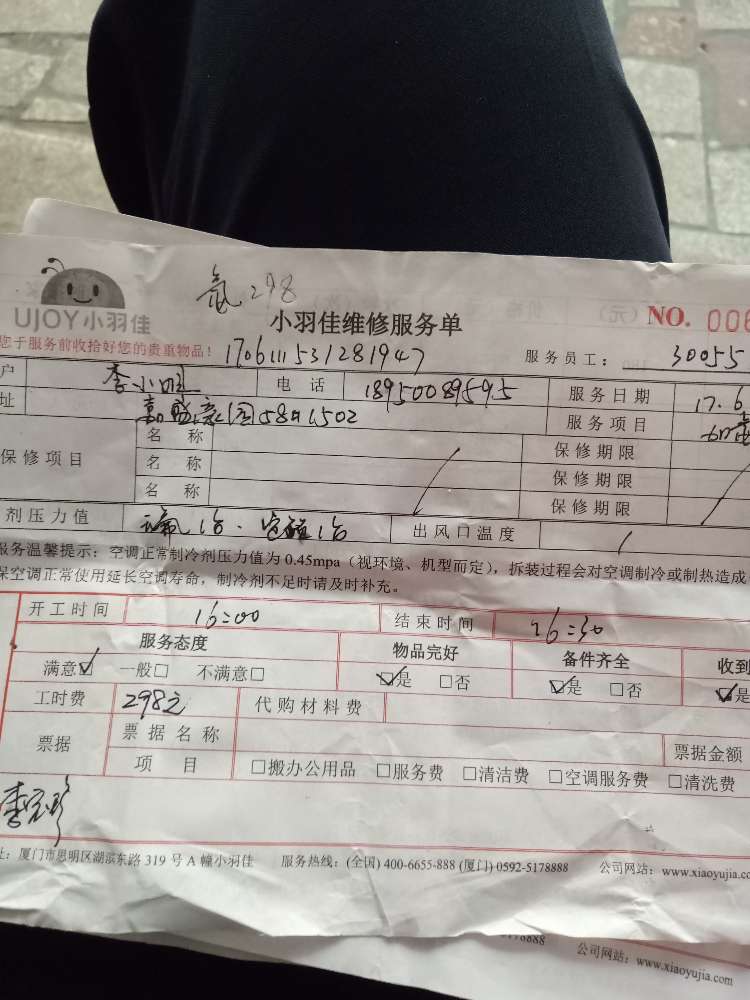 氟298
UJOY小羽佳
小羽佳维修服务单
NO. 006
您于服务前收拾好您的贵重物品！
1706111531281947
服务员工： 30055
户 李小旺 电话 18950089595 服务日期 17.6
址 嘉盛豪园58#1502 服务项目
保修项目 名称 保修期限
名称 保修期限
名称 保修期限
剂压力值 出风口温度
服务温馨提示：空调正常制冷剂压力值为 0.45mpa（视环境、机型而定），拆装过程会对空调制冷或制热造成
保空调正常使用延长空调寿命，制冷剂不足时请及时补充。
开工时间 16:00 结束时间 16:30
服务态度 物品完好 备件齐全 收到
满意☑ 一般□ 不满意□ ☑是 □否 ☑是 □否 ☑是
工时费 298元 代购材料费
票据 票据名称 票据金额
项目 □搬办公用品 □服务费 □清洁费 □空调服务费 □清洗费
址：厦门市思明区湖滨东路 319 号 A 幢小羽佳 服务热线：(全国) 400-6655-888 (厦门) 0592-5178888 公司网站：www.xiaoyujia.co
5178888 公司网站：www.xiaoyujia.com